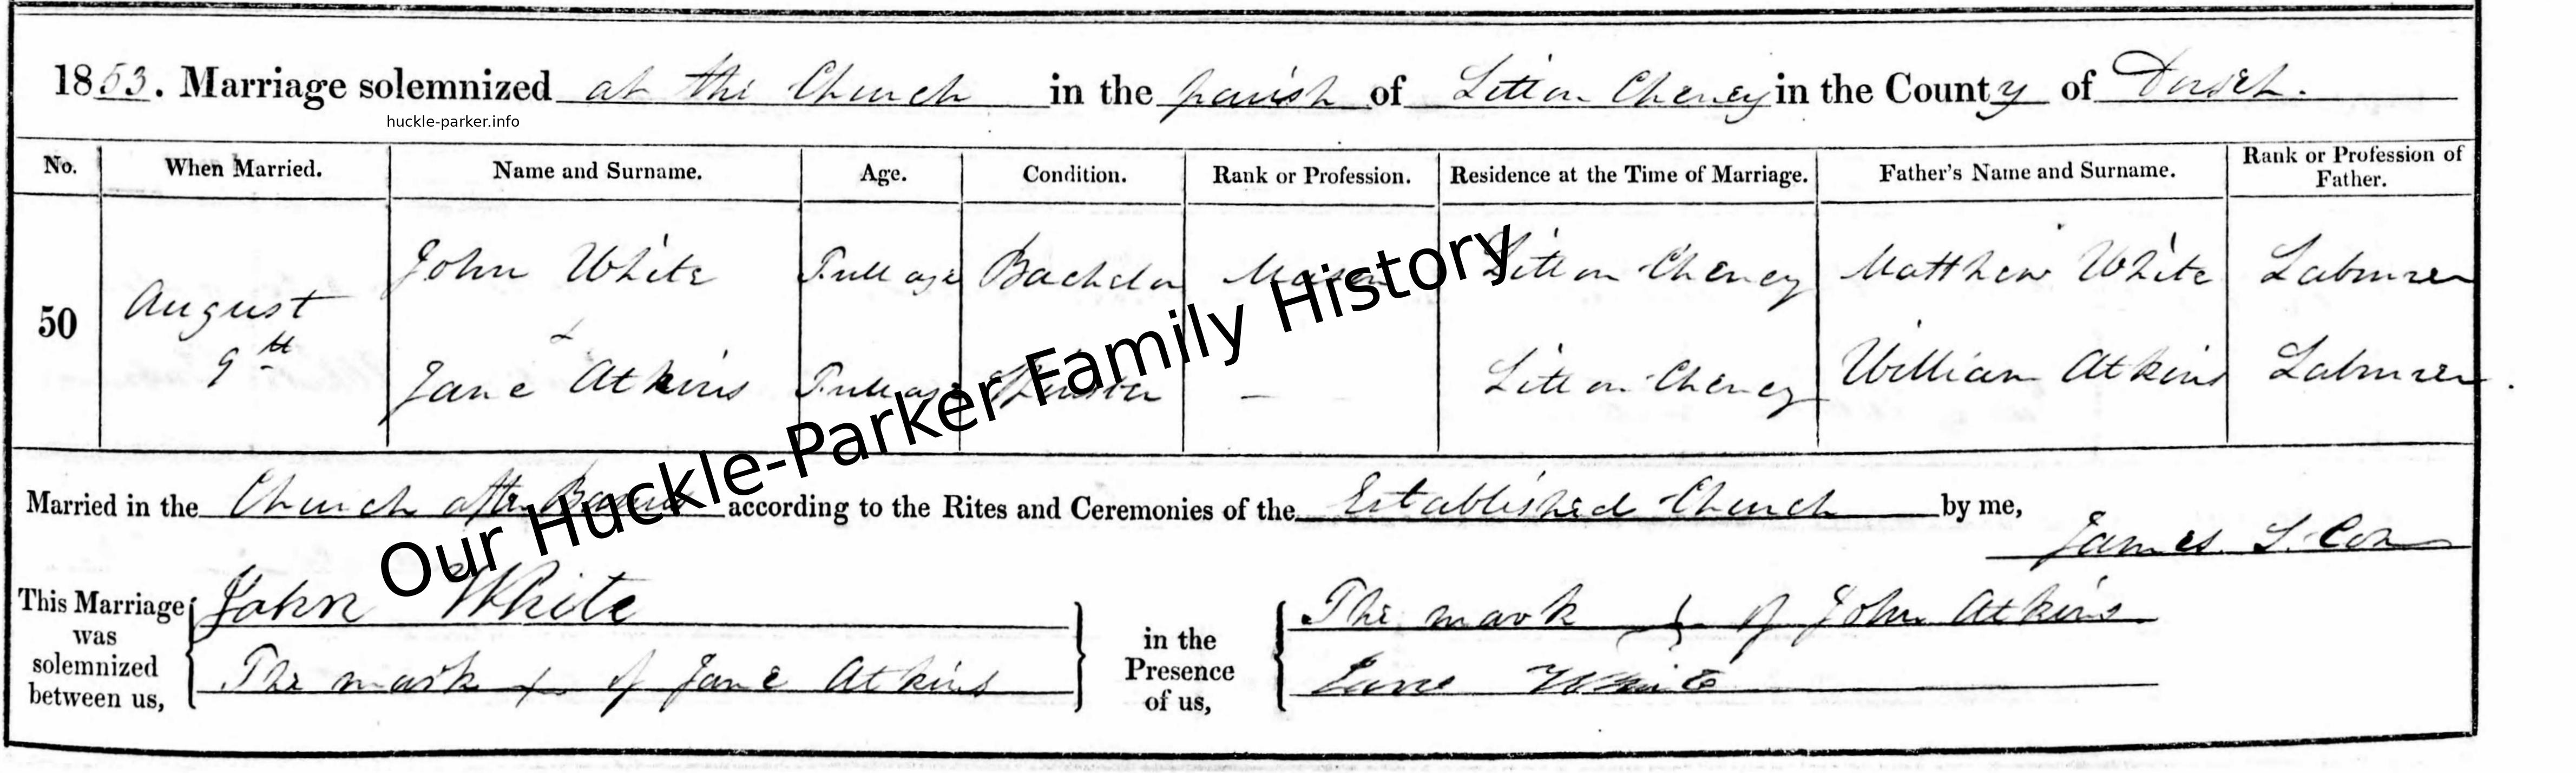 1853. Marriage solemnized at the Church in the parish of Litton Cheney in the County of Dorset.
huckle-parker.info
No. When Married. Name and Surname. Age. Condition. Rank or Profession. Residence at the Time of Marriage. Father's Name and Surname. Rank or Profession of Father.
50 August 9th
John White Full age Bachelor Mason Litton Cheney Matthew White Labourer
&
Jane Atkins Full age Spinster — Litton Cheney William Atkins Labourer.
Our Huckle-Parker Family History
Married in the Church after Banns according to the Rites and Ceremonies of the Established Church by me,
James S. Cox
This Marriage was solemnized between us,
John White
The mark x of Jane Atkins
in the Presence of us,
The mark x of John Atkins
White